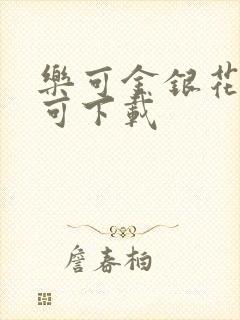 樂可金銀花
可下載
詹春柏